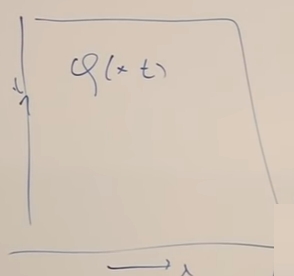 φ(x t)
t